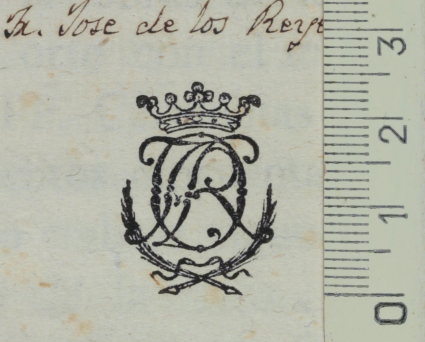 Fr. Jose de los Reye
3
2
1
0